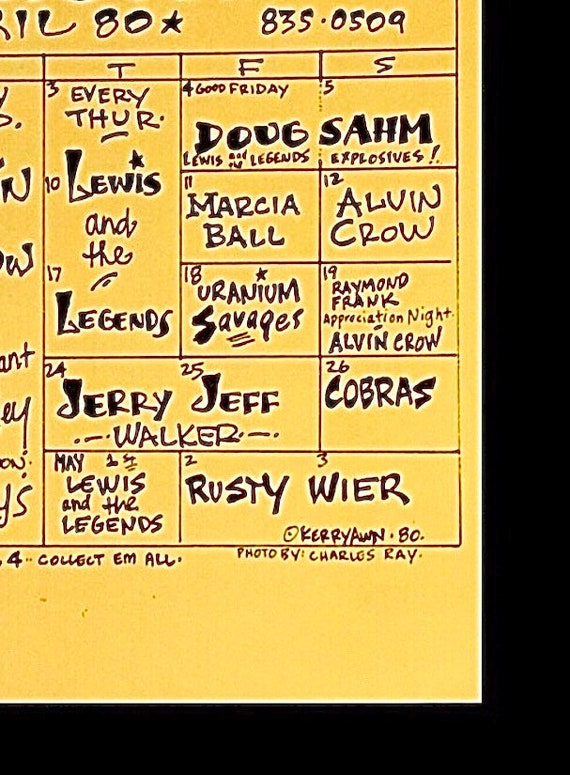 RIL 80★ 835·0509
T F S
3 EVERY
THUR.
4 GOOD FRIDAY 5
DOUG SAHM
LEWIS and the LEGENDS EXPLOSIVES!
10 LEWIS
and
the
17
LEGENDS
11
MARCIA
BALL
12
ALVIN
CROW
18
URANIUM
Savages
19
RAYMOND
FRANK
Appreciation Night
ALVIN CROW
24 25
JERRY JEFF
·—·WALKER·—·
26
COBRAS
MAY 1st
LEWIS
and the
LEGENDS
2 3
RUSTY WIER
©KERRY AWN·80·
4·· COLLECT EM ALL· PHOTO BY: CHARLES RAY·